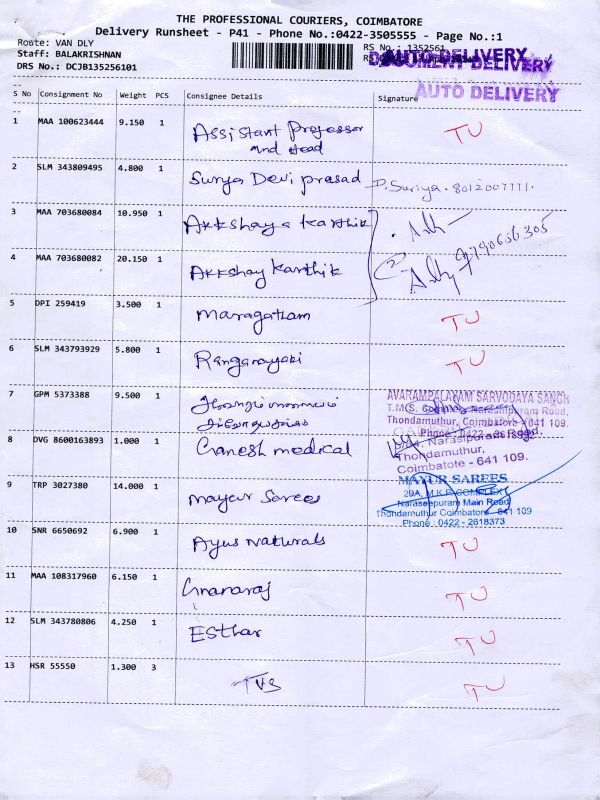 THE PROFESSIONAL COURIERS, COIMBATORE
Delivery Runsheet - P41 - Phone No.:0422-3505555 - Page No.:1
Route: VAN DLY
Staff: BALAKRISHNAN
DRS No.: DCJB135256101
RS No.: 1352561
AUTO DELIVERY
DOCUMENT DELIVERY
AUTO DELIVERY
S No Consignment No Weight PCS Consignee Details Signature
1 MAA 100623444 9.150 1 Assistant Professor and Head TU
2 SLM 343809495 4.800 1 Surya Devi prasad D. Suriya. 8012007771.
3 MAA 703680084 10.950 1 Akkshaya Karthik
4 MAA 703680082 20.150 1 Akkshay Karthik 9790656305
5 DPI 259419 3.500 1 Maragatham TU
6 SLM 343793929 5.800 1 Ranganayaki TU
7 GPM 5373388 9.500 1
AVARAMPALAYAM SARVODAYA SANGH
Narashipuram Road,
Thondamuthur, Coimbatore - 641 109.
8 DVG 8600163893 1.000 1 Ganesh medical
Narasipuram Road,
Thondamuthur,
Coimbatote - 641 109.
9 TRP 3027380 14.000 1 Mayur Sarees
MAYUR SAREES
29A, M.K.P. COMPLEX
Naraseepuram Main Road
Thondamuthur Coimbatore - 641 109
Phone : 0422 - 2618373
10 SNR 6650692 6.900 1 Ayus Naturals TU
11 MAA 108317960 6.150 1 Gnanaraj TU
12 SLM 343780806 4.250 1 Esthar TU
13 HSR 55550 1.300 3 TVS TU